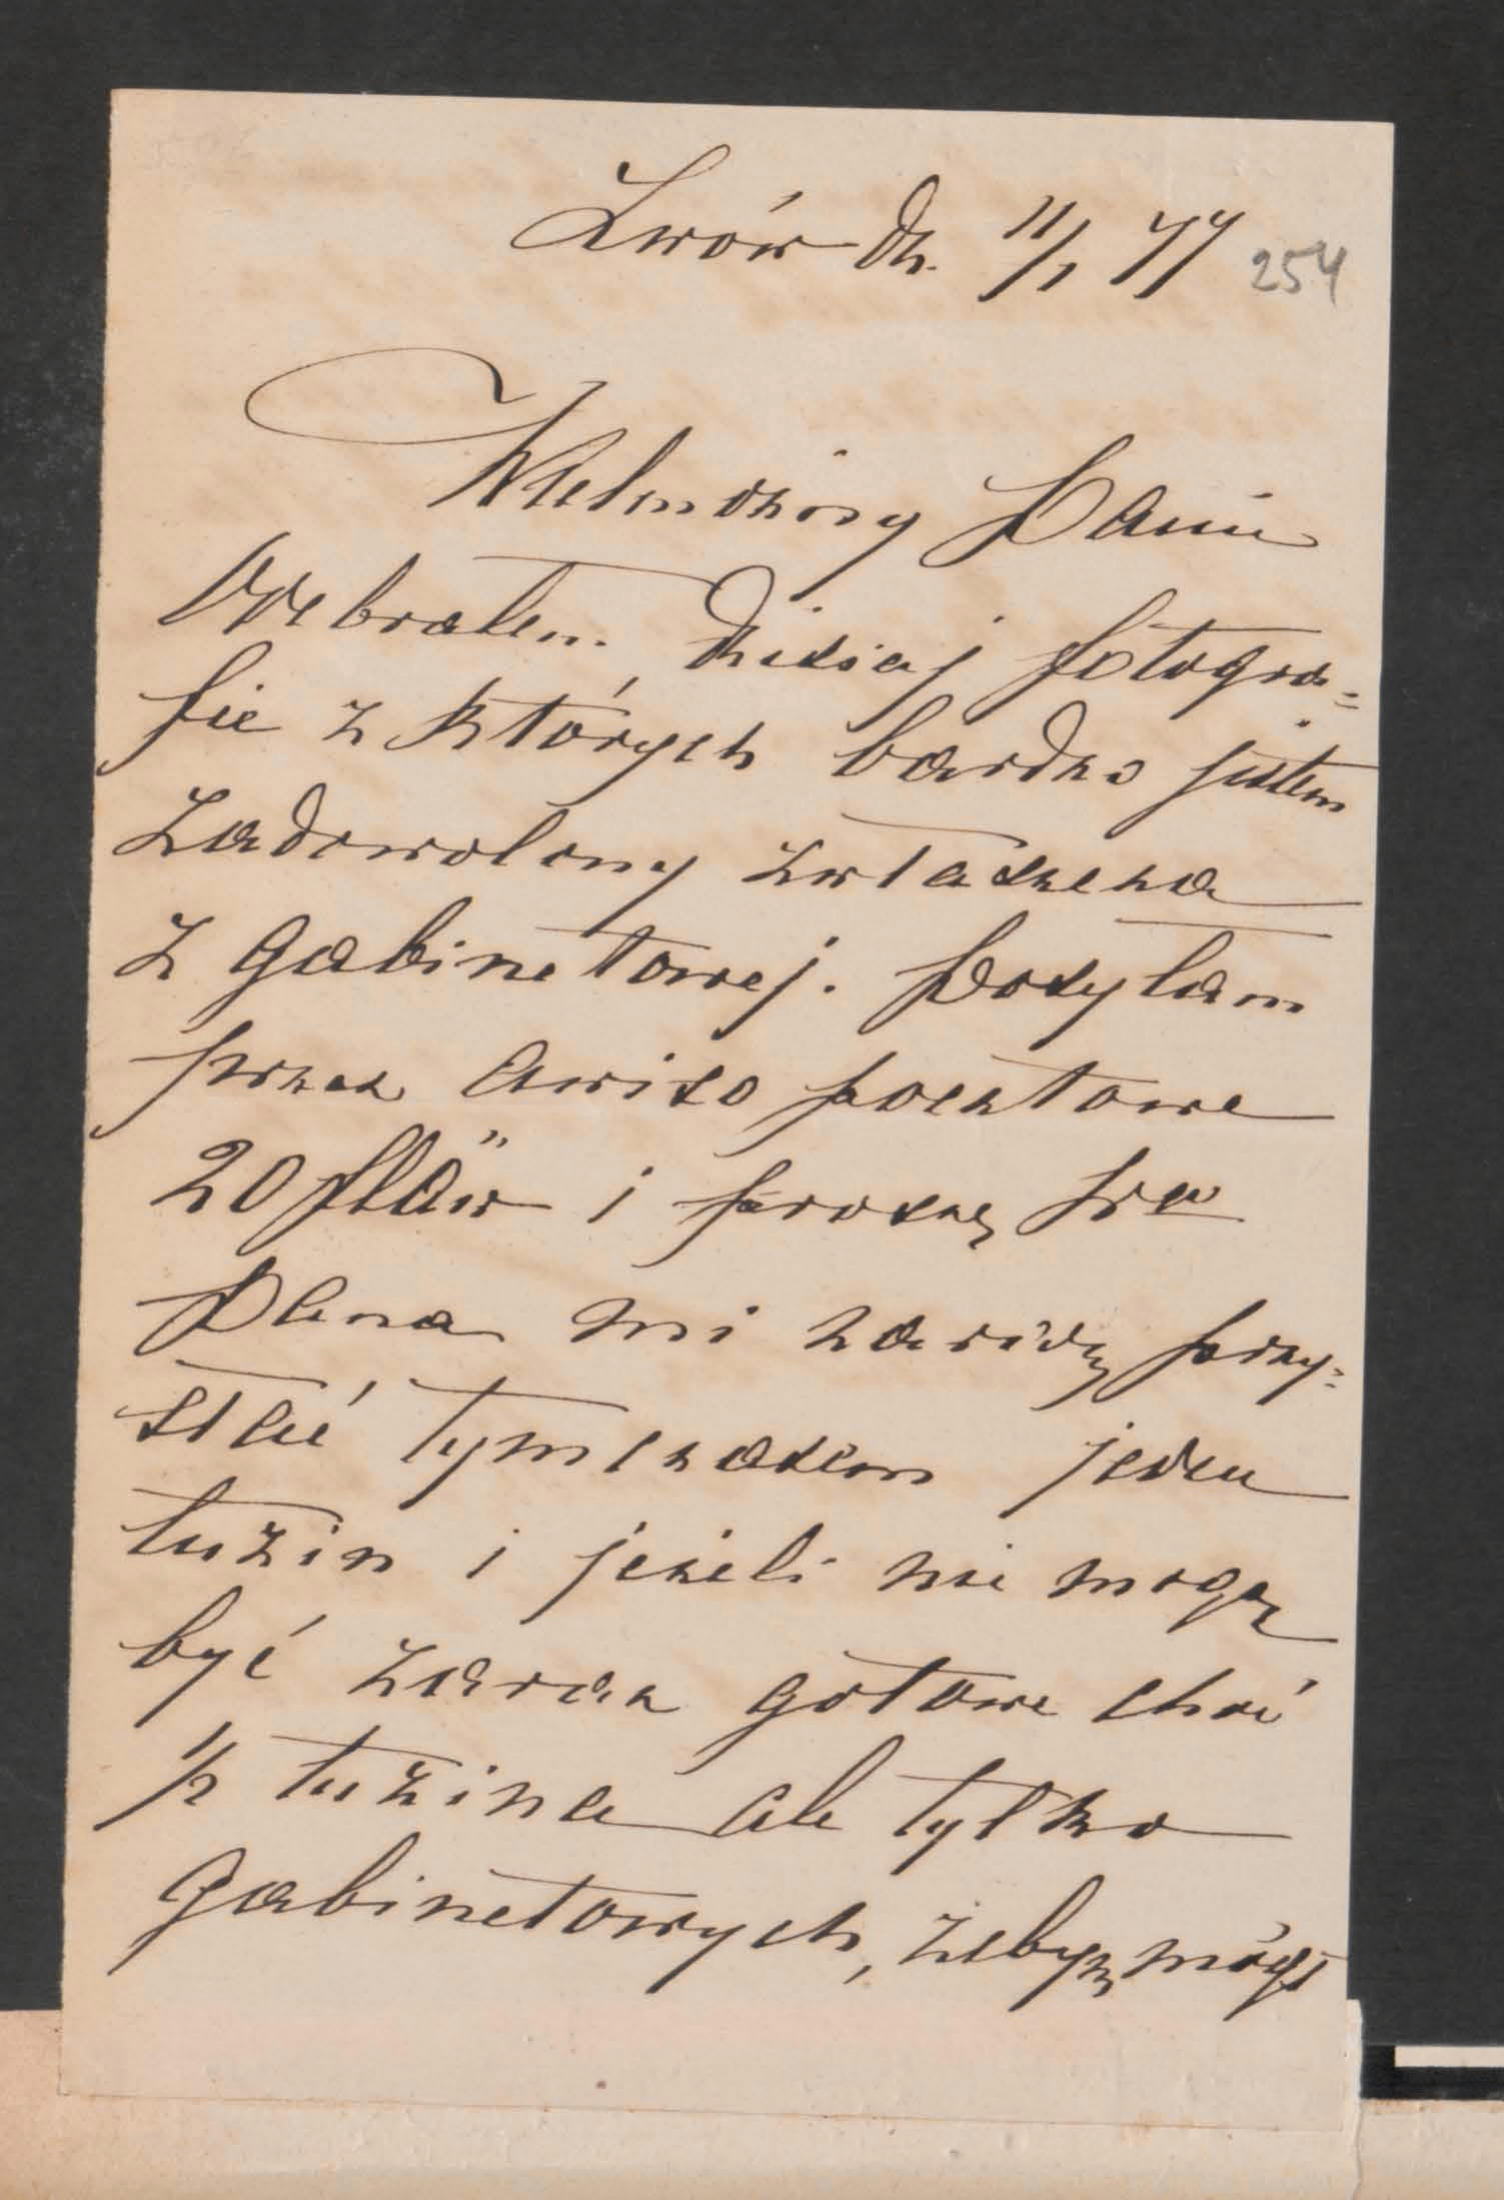 Lwów dn. 11/1 77 254
Wielmożny Panie
Odebrałem dzisiaj fotogra=
fie z których bardzo jestem
zadowolony zwłaszcza
z gabinetowej. Posyłam
przez awizo pocztowe
20 flów i proszę
Pana mi zaraz przy=
słać tymczasem jeden
tuzin i jeżeli nie mogą
być zaraz gotowe choć
1/2 tuzina ale tylko
gabinetowych, żebym mógł